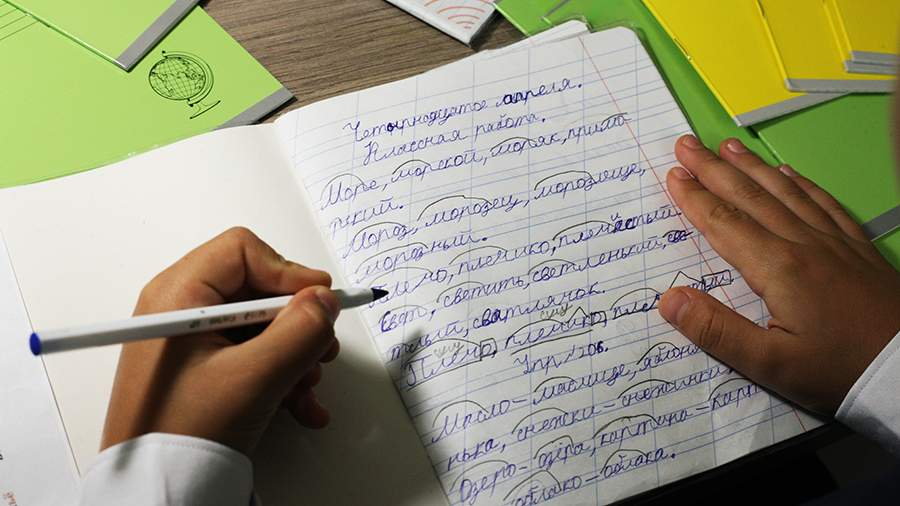 Четырнадцатое апреля.
Классная работа.
Море, морской, моряк, примо-
рский.
Мороз, морозец, морозище,
морозный.
Племо, племико,
Свет, светить, светленький, све-
тлый, светлячок.
Племо, племико,
Упр. №206.
Масло – маслице,
нька, снежки – снежинки
Озеро – озёра, картина –
облако – облака.